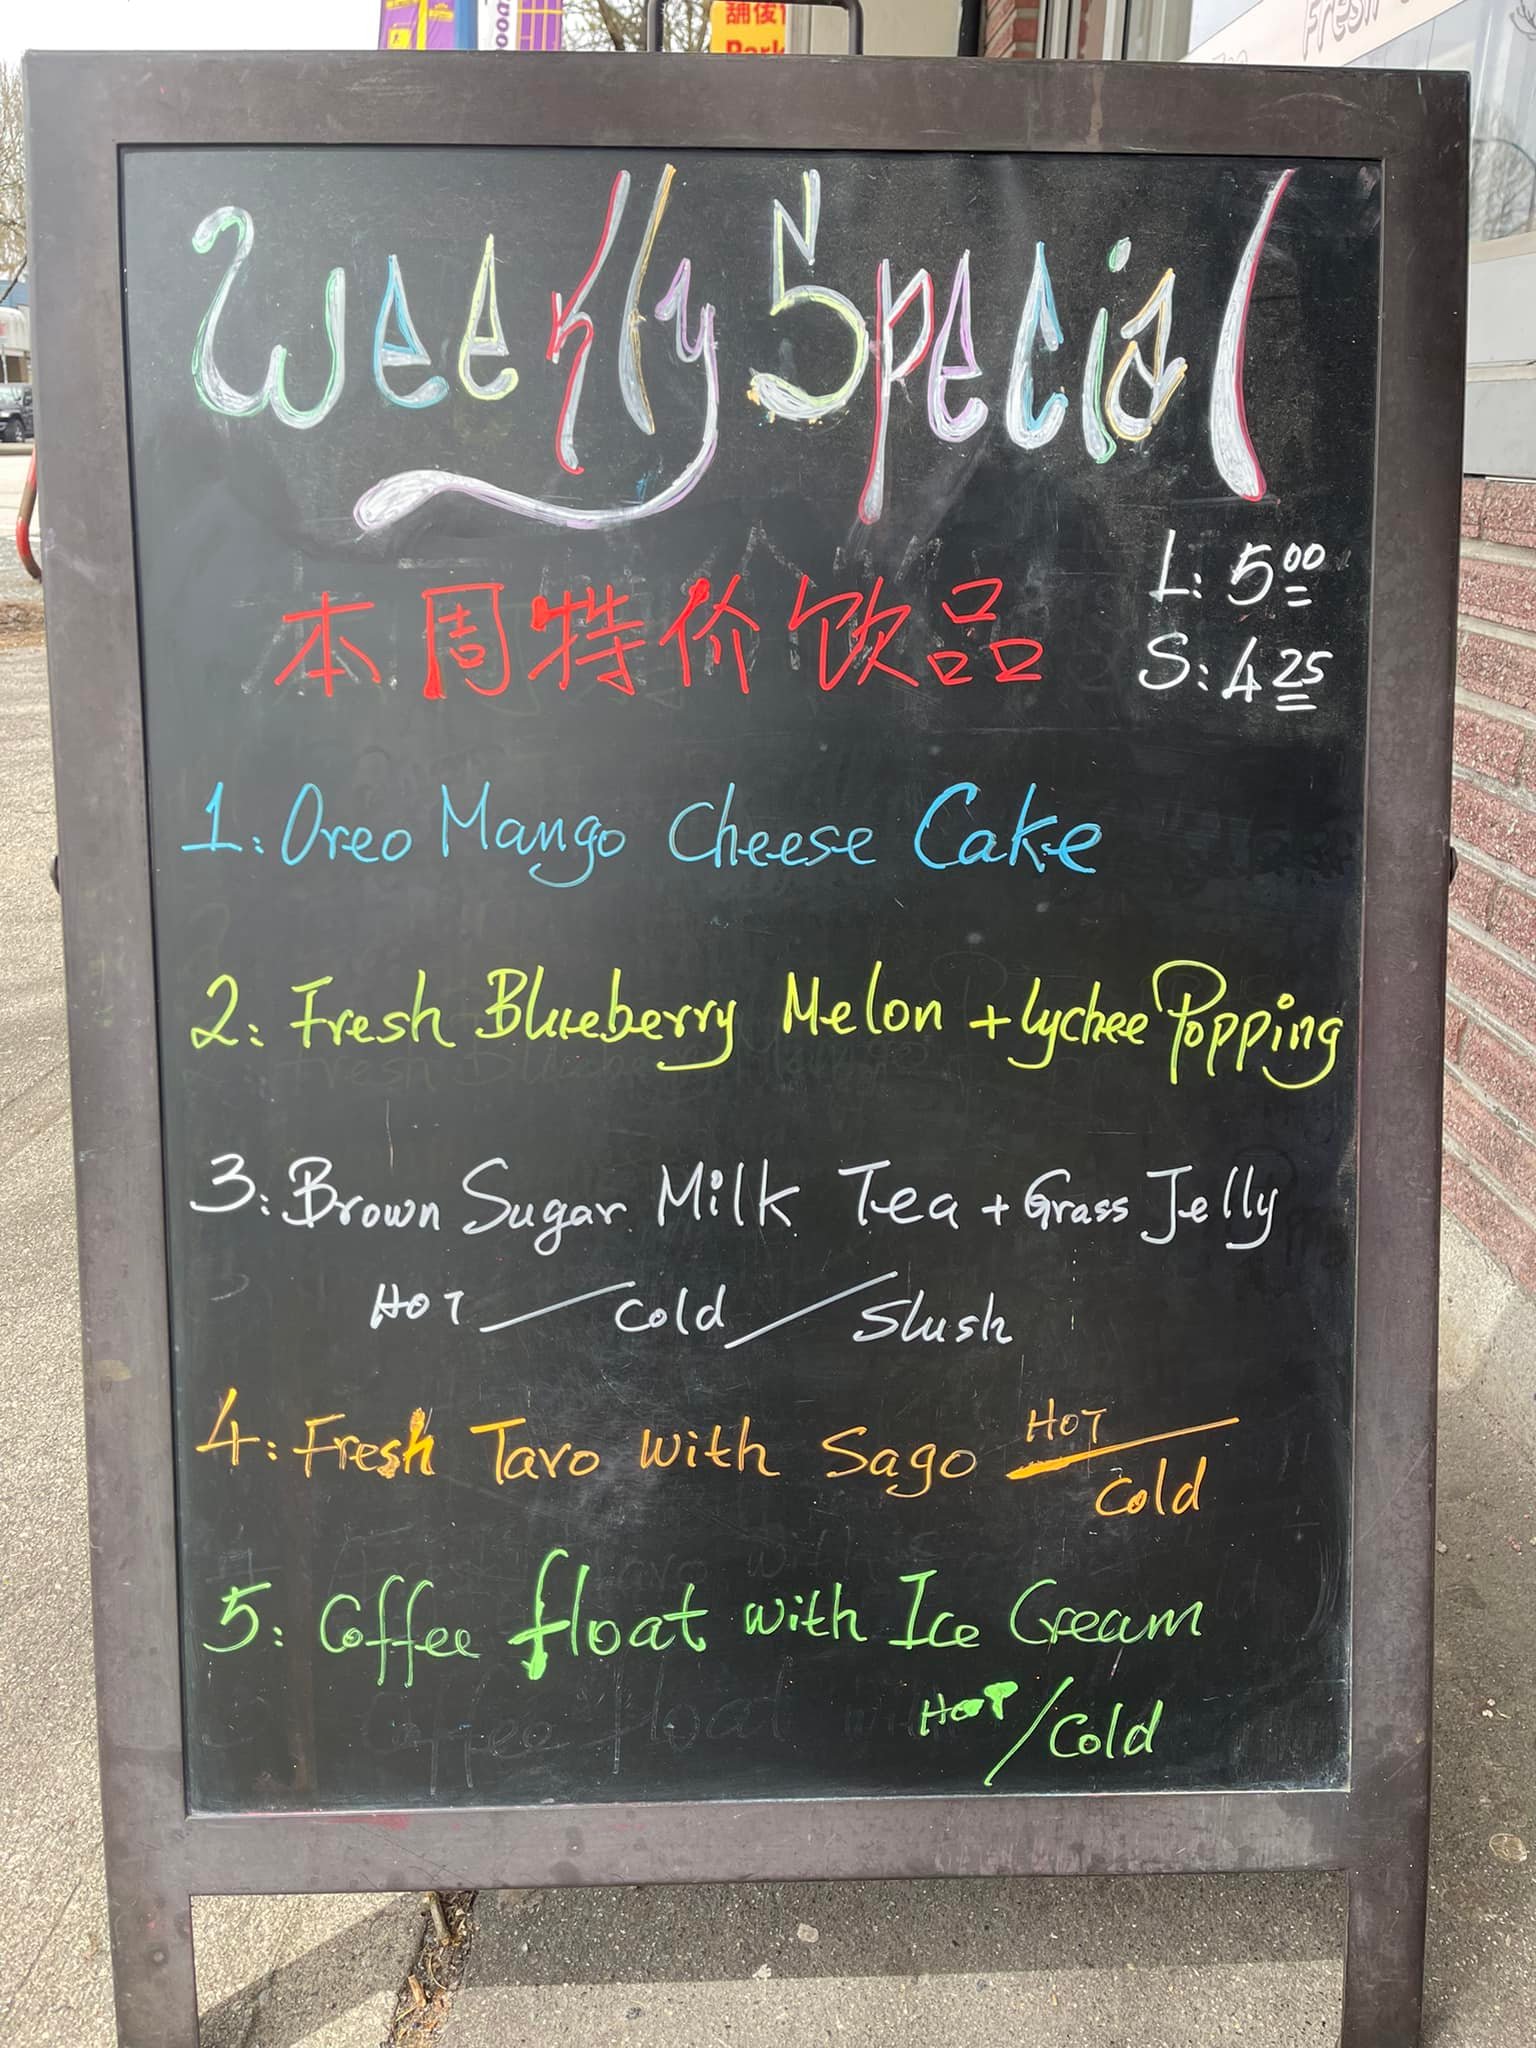 舖後
Park
Fresh
Weekly Special
本周特价饮品
L: 5.00
S: 4.25
1: Oreo Mango Cheese Cake
2: Fresh Blueberry Melon + Lychee Popping
3: Brown Sugar Milk Tea + Grass Jelly
HOT / Cold / Slush
4: Fresh Taro with Sago HOT / Cold
5: Coffee float with Ice Cream
HOT / Cold